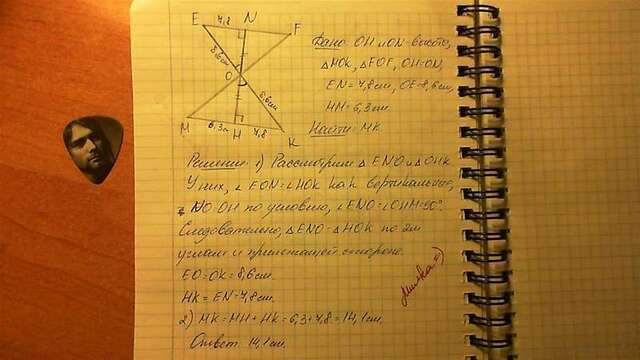 E 7,8 N F
8,6см
O
8,6см
M 6,3 H 7,8 K
Дано: OH и ON-высоты,
△MOK, △EOF, OH=ON,
EN=7,8см, OE=8,6см,
HM=6,3см.
Найти: MK.
Решение: 1) Рассмотрим △ENO и △OHK
У них, ∠EON=∠HOK как вертикальные,
NO=OH по условию, ∠ENO=∠OHM=90°.
Следовательно, △ENO=△HOK по 2м
углам и прилежащей стороне.
EO=OK=8,6см.
HK=EN=7,8см.
2) MK=MH+HK=6,3+7,8=14,1см.
Ответ: 14,1см.